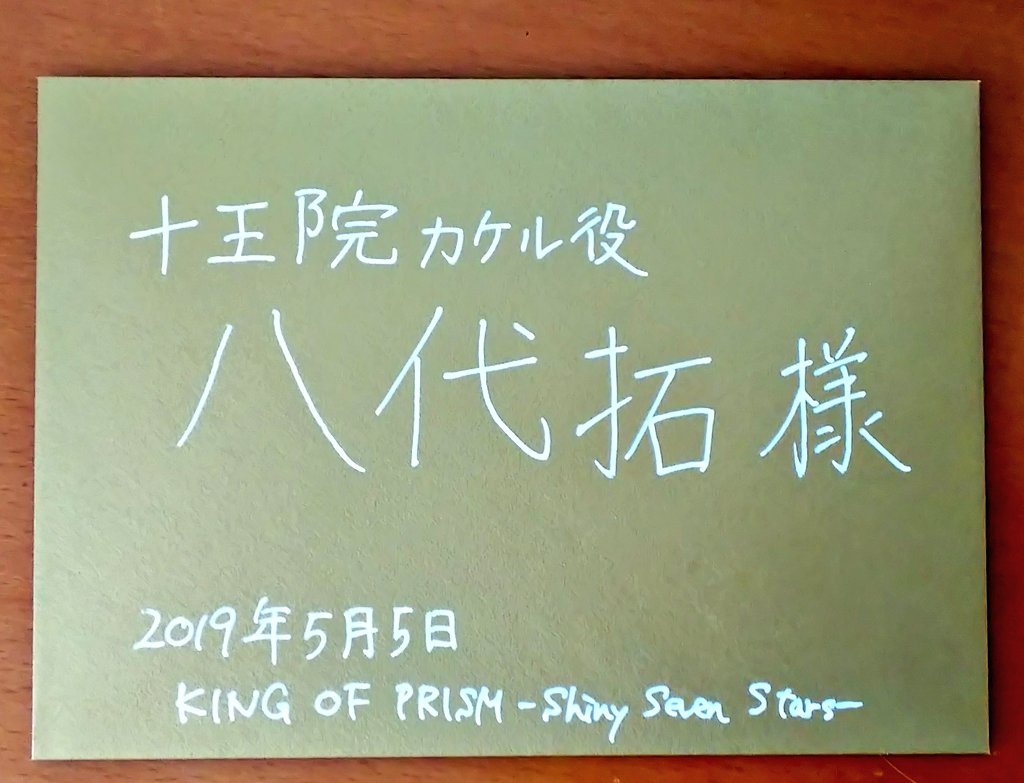 十王院カケル役
八代拓様
2019年5月5日
KING OF PRISM -Shiny Seven Stars-